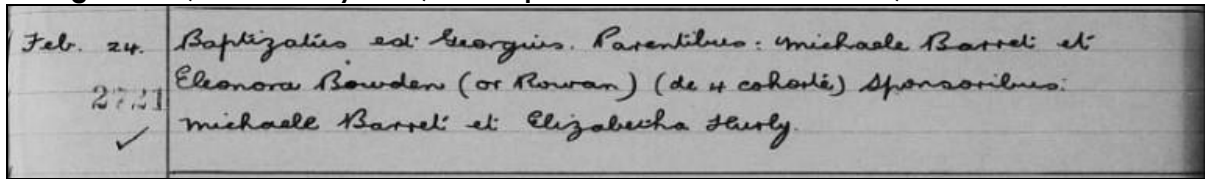 Feb. 24. Baptizatus est Georgius. Parentibus: Michaele Barret et
2721 Eleonora Bowden (or Rowan) (de 4 cohorte) Sponsoribus:
✓ Michaele Barret et Elizabetha Hurly.